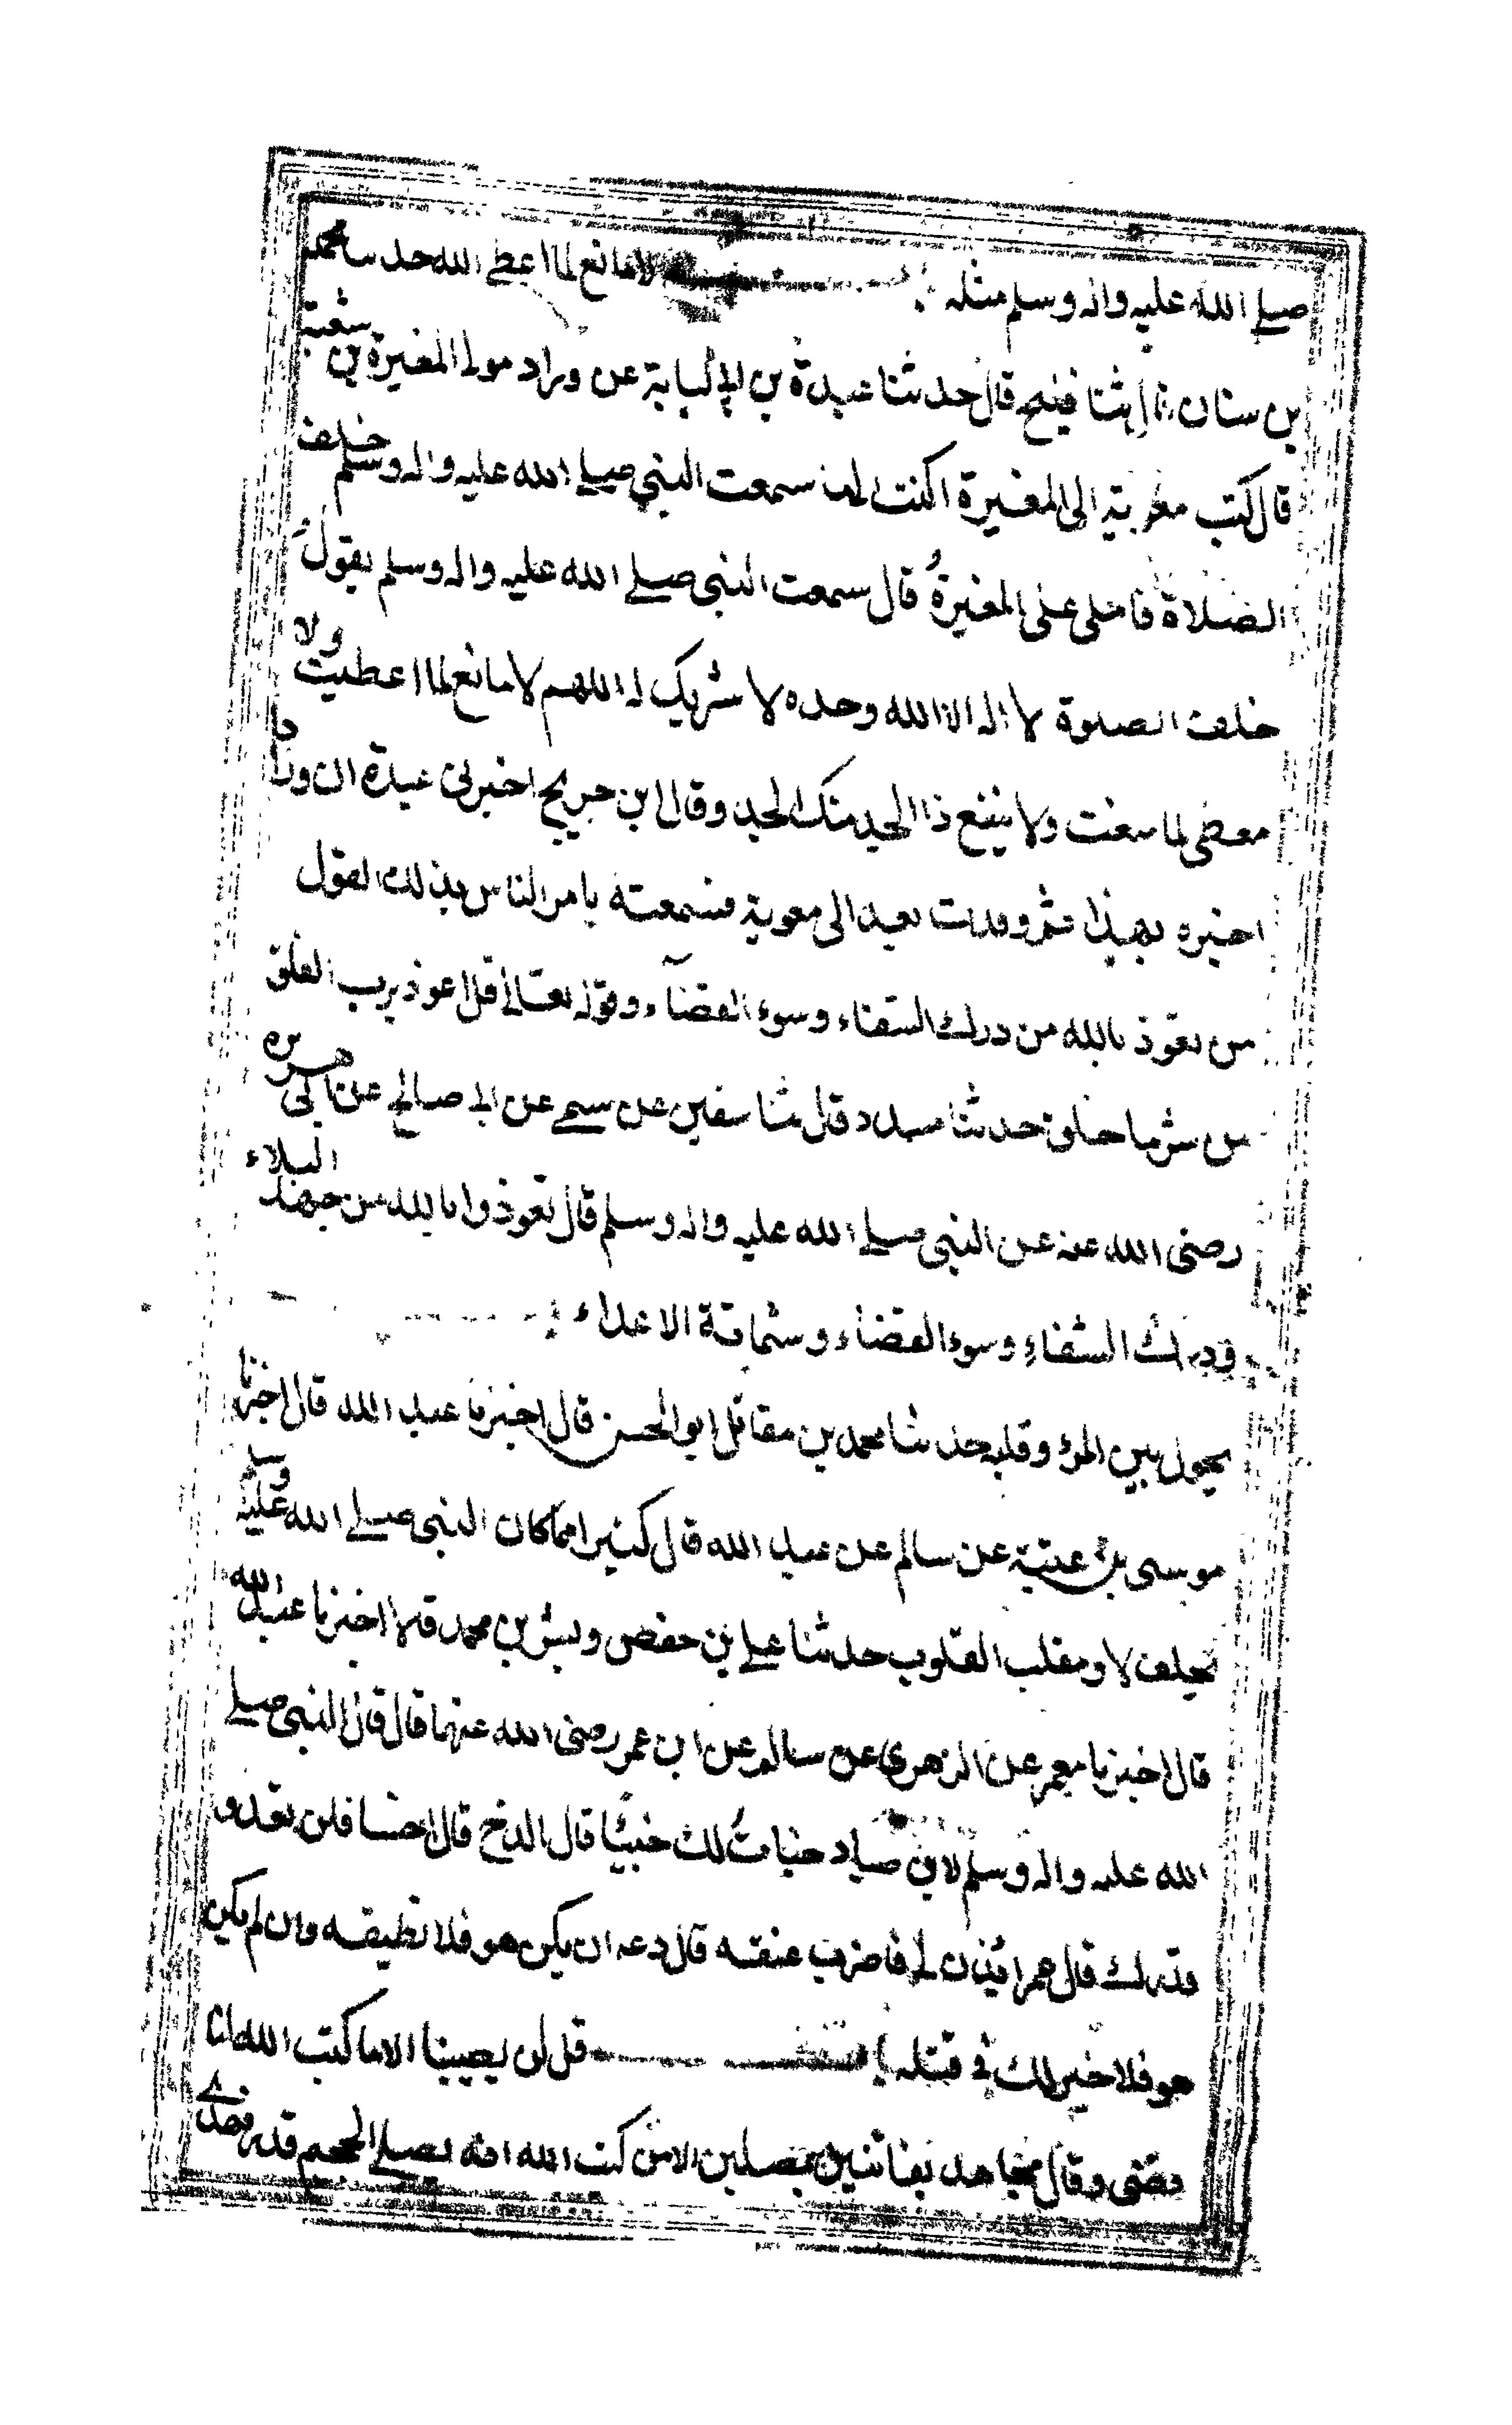 صلى الله عليه واله وسلم مثله لا مانع لما اعطى الله حدثنا محمد
بن سنان ثنا فليح قال حدثنا عبدة بن ابي لبابة عن وراد مولى المغيرة بن شعبة
قال كتب معوية الى المغيرة اكتب الي ما سمعت النبي صلى الله عليه واله وسلم خلف
الصلاة فاملى على المغيرة قال سمعت النبي صلى الله عليه واله وسلم يقول
خلف الصلوة لا اله الا الله وحده لا شريك له اللهم لا مانع لما اعطيت ولا
معطى لما منعت ولا ينفع ذا الجد منك الجد وقال ابن جريج اخبرني عبدة ان ورادا
اخبره بهذا ثم وفدت بعد الى معوية فسمعته يامر الناس بذلك القول
من تعوذ بالله من درك الشقاء وسوء القضآء وقوله تعالى قل اعوذ برب الفلق
من شر ما خلق حدثنا مسدد قال ثنا سفين عن سمي عن ابي صالح عن ابي هريره
رضى الله عنه عن النبي صلى الله عليه واله وسلم قال تعوذوا بالله من جهد البلاء
ودرك الشقاء وسوء القضاء وشماتة الاعداء
يحول بين المرء وقلبه حدثنا محمد بن مقاتل ابو الحسن قال اخبرنا عبد الله قال اخبرنا
موسى بن عقبة عن سالم عن عبد الله قال كثيرا مما كان النبي صلى الله عليه وسلم
يحلف لا ومقلب القلوب حدثنا علي بن حفص وبشر بن محمد قالا اخبرنا عبد الله
قال اخبرنا معمر عن الزهري عن سالم عن ابن عمر رضى الله عنهما قال قال النبي صلى
الله عليه واله وسلم لابن صياد خبات لك خبيئا قال الدخ قال اخسا فلن تعدو
قدرك قال عمر ائذن لي فاضرب عنقه قال دعه ان يكن هو فلا تطيقه وان لم يكن
هو فلا خير لك في قتله قل لن يصيبنا الا ما كتب الله لنا
قضى وقال مجاهد بفاتنين بمضلين الا من كتب الله انه يصلى الجحيم قدر فهدى